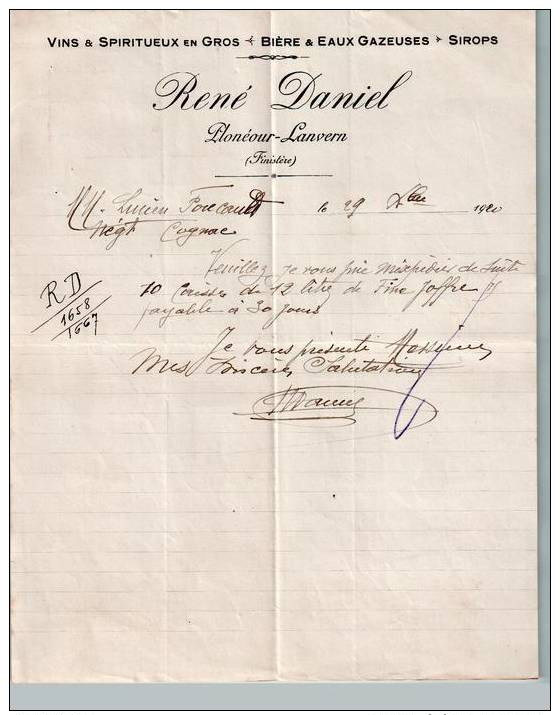 VINS & SPIRITUEUX EN GROS BIÈRE & EAUX GAZEUSES SIROPS
René Daniel
Plonéour-Lanvern
(Finistère)
MM. Lucien Foucauld
le 29 Xbre 1920
Négt Cognac
Veuillez je vous prie m'expédier de suite
10 caisses de 12 litres de Fine Joffre
payable à 30 jours
RD
1658
1667
Je vous présente Messieurs
Mes Sincères Salutations
Daniel